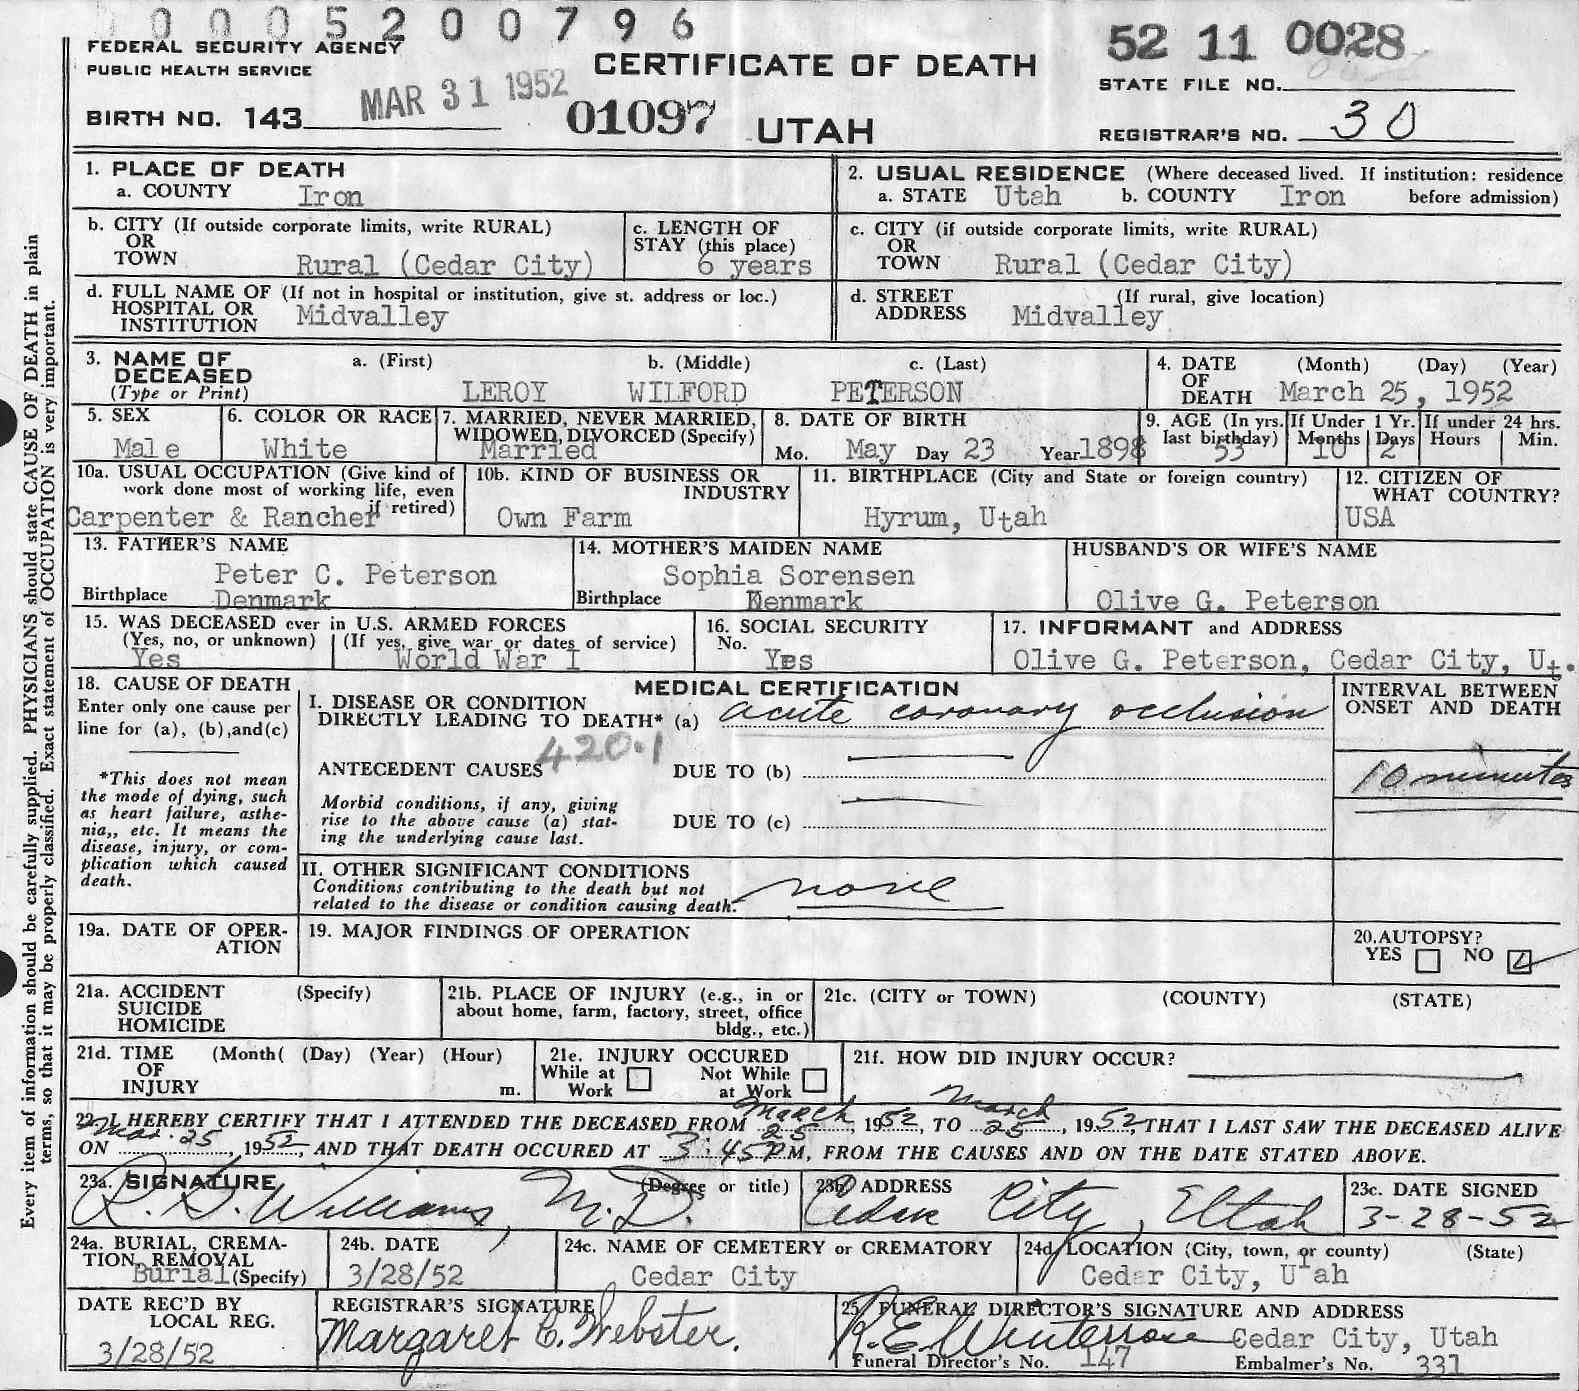 0005200796
FEDERAL SECURITY AGENCY
PUBLIC HEALTH SERVICE
CERTIFICATE OF DEATH
52 11 0028
STATE FILE NO.
BIRTH NO. 143
MAR 31 1952
01097
UTAH
REGISTRAR'S NO. 30
Every item of information should be carefully supplied. PHYSICIANS should state CAUSE OF DEATH in plain
terms, so that it may be properly classified. Exact statement of OCCUPATION is very important.
1. PLACE OF DEATH
a. COUNTY Iron
2. USUAL RESIDENCE (Where deceased lived. If institution: residence
a. STATE Utah b. COUNTY Iron before admission)
b. CITY (If outside corporate limits, write RURAL)
OR
TOWN Rural (Cedar City)
c. LENGTH OF
STAY (this place)
6 years
c. CITY (if outside corporate limits, write RURAL)
OR
TOWN Rural (Cedar City)
d. FULL NAME OF (If not in hospital or institution, give st. address or loc.)
HOSPITAL OR
INSTITUTION Midvalley
d. STREET (If rural, give location)
ADDRESS Midvalley
3. NAME OF
DECEASED
(Type or Print)
a. (First) b. (Middle) c. (Last)
LEROY WILFORD PETERSON
4. DATE (Month) (Day) (Year)
OF
DEATH March 25, 1952
5. SEX
Male
6. COLOR OR RACE
White
7. MARRIED, NEVER MARRIED,
WIDOWED, DIVORCED (Specify)
Married
8. DATE OF BIRTH
Mo. May Day 23 Year 1898
9. AGE (In yrs.
last birthday)
53
If Under 1 Yr.
Months Days
10 2
If under 24 hrs.
Hours Min.
10a. USUAL OCCUPATION (Give kind of
work done most of working life, even
if retired)
Carpenter & Rancher
10b. KIND OF BUSINESS OR
INDUSTRY
Own Farm
11. BIRTHPLACE (City and State or foreign country)
Hyrum, Utah
12. CITIZEN OF
WHAT COUNTRY?
USA
13. FATHER'S NAME
Peter C. Peterson
Birthplace Denmark
14. MOTHER'S MAIDEN NAME
Sophia Sorensen
Birthplace Denmark
HUSBAND'S OR WIFE'S NAME
Olive G. Peterson
15. WAS DECEASED ever in U.S. ARMED FORCES
(Yes, no, or unknown) (If yes, give war or dates of service)
Yes World War I
16. SOCIAL SECURITY
No.
Yes
17. INFORMANT and ADDRESS
Olive G. Peterson, Cedar City, Ut.
18. CAUSE OF DEATH
Enter only one cause per
line for (a), (b), and (c)
*This does not mean
the mode of dying, such
as heart failure, asthe-
nia,, etc. It means the
disease, injury, or com-
plication which caused
death.
MEDICAL CERTIFICATION
I. DISEASE OR CONDITION
DIRECTLY LEADING TO DEATH* (a) acute coronary occlusion
420.1
ANTECEDENT CAUSES DUE TO (b)
Morbid conditions, if any, giving
rise to the above cause (a) stat-
ing the underlying cause last.
DUE TO (c)
INTERVAL BETWEEN
ONSET AND DEATH
10 minutes
II. OTHER SIGNIFICANT CONDITIONS
Conditions contributing to the death but not
related to the disease or condition causing death.
none
19a. DATE OF OPER-
ATION
19. MAJOR FINDINGS OF OPERATION
20. AUTOPSY?
YES NO
21a. ACCIDENT (Specify)
SUICIDE
HOMICIDE
21b. PLACE OF INJURY (e.g., in or
about home, farm, factory, street, office
bldg., etc.)
21c. (CITY or TOWN) (COUNTY) (STATE)
21d. TIME (Month( (Day) (Year) (Hour)
OF
INJURY m.
21e. INJURY OCCURED
While at Not While
Work at Work
21f. HOW DID INJURY OCCUR?
22. I HEREBY CERTIFY THAT I ATTENDED THE DECEASED FROM March 25, 1952, TO March 25, 1952, THAT I LAST SAW THE DECEASED ALIVE
ON Mar. 25, 1952, AND THAT DEATH OCCURED AT 3:45 P M, FROM THE CAUSES AND ON THE DATE STATED ABOVE.
23a. SIGNATURE (Degree or title)
R. G. Williams, M.D.
23b. ADDRESS
Cedar City, Utah
23c. DATE SIGNED
3-28-52
24a. BURIAL, CREMA-
TION, REMOVAL
Burial (Specify)
24b. DATE
3/28/52
24c. NAME OF CEMETERY or CREMATORY
Cedar City
24d. LOCATION (City, town, or county) (State)
Cedar City, Utah
DATE REC'D BY
LOCAL REG.
3/28/52
REGISTRAR'S SIGNATURE
Margaret C. Webster.
25. FUNERAL DIRECTOR'S SIGNATURE AND ADDRESS
R.E. Winterrose Cedar City, Utah
Funeral Director's No. 147 Embalmer's No. 331